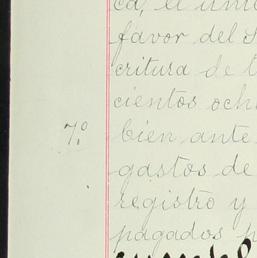 ca, el
favor del
critura de
cientos och
7º bien ante
gastos de
registro y
pagados p